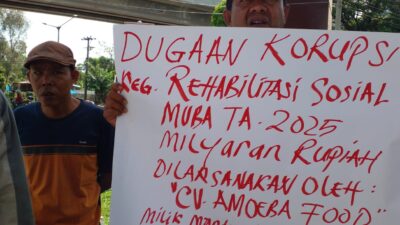 DUGAAN KORUPSI
KEG. REHABILITASI SOSIAL
MUBA TA. 2025
MILYARAN RUPIAH
DILAKSANAKAN OLEH :
"CV. AMOEBA FOOD"
MILIK